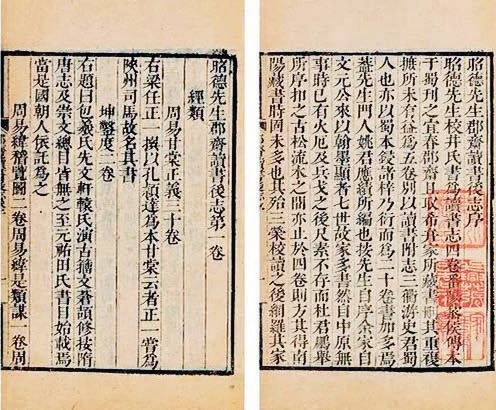 昭德先生郡齋讀書後志序
昭德先生校井氏書爲讀書志四卷番陽黎侯傳本
于蜀刊之宜春郡齋且取希弁家所藏書刪其重複
摭所未有益爲五卷別以讀書附志三衢游史君蜀
人也亦以蜀本鋟諸梓乃衍而爲二十卷書加多焉
蓋先生門人姚君應績所編也按先生自序余家自
文元公來以翰墨顯者七世故家多書然自中原無
事時已有火厄及兵戈之後尺素不存而杜君鵬舉
所序扣之古松流水之間亦止於四卷則方其得南
陽藏書時固未多也其殆三榮校讀之後網羅其家
昭德先生郡齋讀書後志第一卷
經類
周易甘棠正義三十卷
右梁任正一撰以孔穎達爲本甘棠云者正一嘗爲
陜州司馬故名其書
坤鑿度二卷
右題曰包羲氏先文軒轅氏演古籀文蒼頡修按隋
唐志及崇文總目皆無之至元祐田氏書目始載焉
當是國朝人依託爲之
周易緯稽覽圖二卷周易緯是類謀一卷周